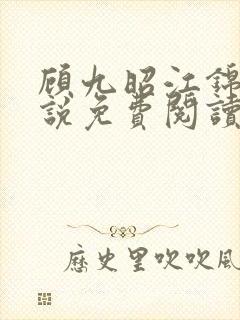 顾九昭江锦
説免費閱讀
歷史里吹吹風